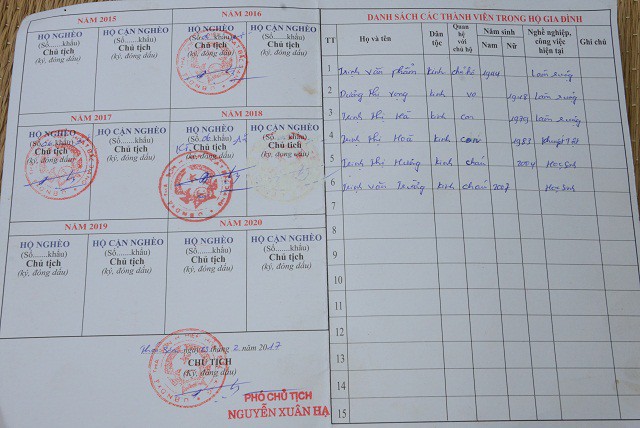 NĂM 2015
NĂM 2016
HỘ NGHÈO HỘ CẬN NGHÈO HỘ NGHÈO HỘ CẬN NGHÈO
(Số.......khẩu) (Số.......khẩu) (Số.......khẩu) (Số.......khẩu)
Chủ tịch Chủ tịch Chủ tịch Chủ tịch
(ký, đóng dấu) (ký, đóng dấu) (ký, đóng dấu) (ký, đóng dấu)
NĂM 2017
NĂM 2018
HỘ NGHÈO HỘ CẬN NGHÈO HỘ NGHÈO HỘ CẬN NGHÈO
(Số khẩu) (Số.......khẩu) (Số khẩu) (Số khẩu)
Chủ tịch Chủ tịch Chủ tịch Chủ tịch
(ký, đóng dấu) (ký, đóng dấu) (ký, đóng dấu) (ký, đóng dấu)
NĂM 2019
NĂM 2020
HỘ NGHÈO HỘ CẬN NGHÈO HỘ NGHÈO HỘ CẬN NGHÈO
(Số.......khẩu) (Số.......khẩu) (Số.......khẩu) (Số.......khẩu)
Chủ tịch Chủ tịch Chủ tịch Chủ tịch
(ký, đóng dấu) (ký, đóng dấu) (ký, đóng dấu) (ký, đóng dấu)
ngày 13 tháng 2 năm 2017
CHỦ TỊCH
(Ký, đóng dấu)
PHÓ CHỦ TỊCH
NGUYỄN XUÂN HẠ
DANH SÁCH CÁC THÀNH VIÊN TRONG HỘ GIA ĐÌNH
TT Họ và tên Dân tộc Quan hệ với chủ hộ Năm sinh Nam Nữ Nghề nghiệp, công việc hiện tại Ghi chú
1 Trịnh văn phẩm kinh chủ hộ 1944 Làm ruộng
2 Dương thị kinh vợ 1948 Làm ruộng
3 Trịnh thị Hà kinh con 1979 Làm ruộng
4 Trịnh thị Hoà kinh con 1983 khuyết tật
5 Trịnh thị Hường kinh cháu 2004 Học sinh
6 Trịnh văn Trường kinh cháu 2007 Học sinh
7
8
9
10
11
12
13
14
15